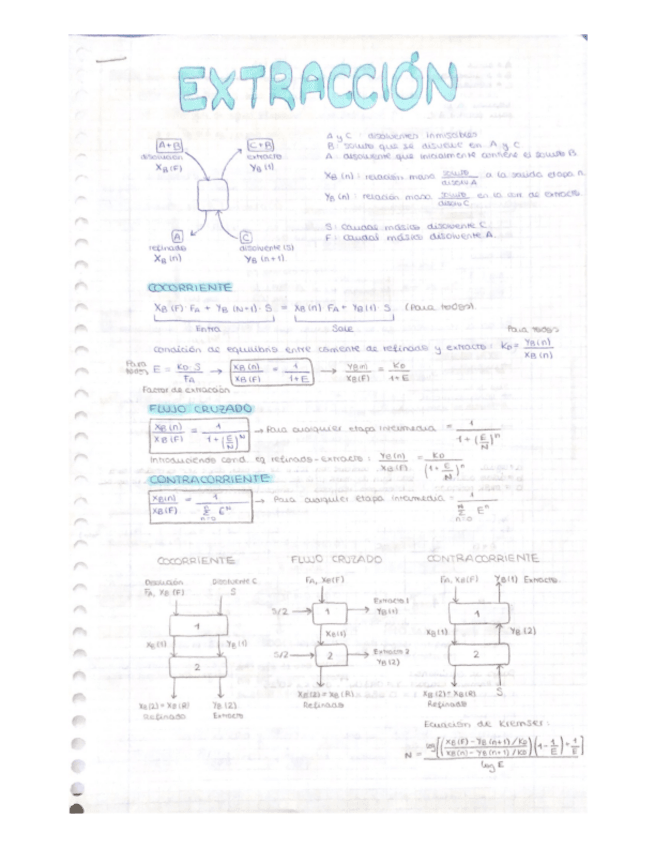 EXTRACCIÓN
A+B
disolución
XB (F)
C+B
extracto
YB (1)
A
refinado
XB (n)
C
disolvente (S)
YB (n+1)
A y C : disolventes inmiscibles
B : soluto que se disuelve en A y C
A : disolvente que inicialmente contiene el soluto B
XB (n) : relación masa soluto / disolv A a la salida etapa n
YB (n) : relación masa soluto / disolv C en la corr. de extracto
S : caudal másico disolvente C
F : caudal másico disolvente A.
COCORRIENTE
XB (F) FA + YB (N+1) · S = XB (n) FA + YB (1) S (Para todos).
Entra Sale
Para todos
Condición de equilibrio entre corriente de refinado y extracto : KD = YB(n) / XB (n)
Para todos E = KD · S / FA → XB (n) / XB (F) = 1 / 1+E → YB(n) / XB(F) = KD / 1+E
Factor de extracción
FLUJO CRUZADO
XB (n) / XB (F) = 1 / 1+(E/N)^N → Para cualquier etapa intermedia = 1 / 1+(E/N)^n
Introduciendo cond. eq refinado-extracto : YB (n) / XB (F) = KD / (1+ E/N)^n
CONTRACORRIENTE
XB(n) / XB(F) = 1 / Σ n=0 E^n → Para cualquier etapa intermedia = 1 / Σ n=0 E^n
COCORRIENTE
Disolución
FA, XB (F)
Disolvente C
S
1
XB (1)
YB (1)
2
XB (2) = XB (R)
Refinado
YB (2)
Extracto
FLUJO CRUZADO
FA, XB(F)
S/2
1
Extracto 1
YB (1)
XB(1)
S/2
2
Extracto 2
YB (2)
XB (2) = XB (R)
Refinado
CONTRACORRIENTE
FA, XB(F)
YB(1) Extracto
1
XB(1)
YB (2)
2
XB (2) = XB(R)
Refinado
S
Ecuación de Kremser :
N = log[(XB (F) - YB (n+1) / KD / XB(n) - YB (n+1) / KD)(1 - 1/E) + 1/E] / log E